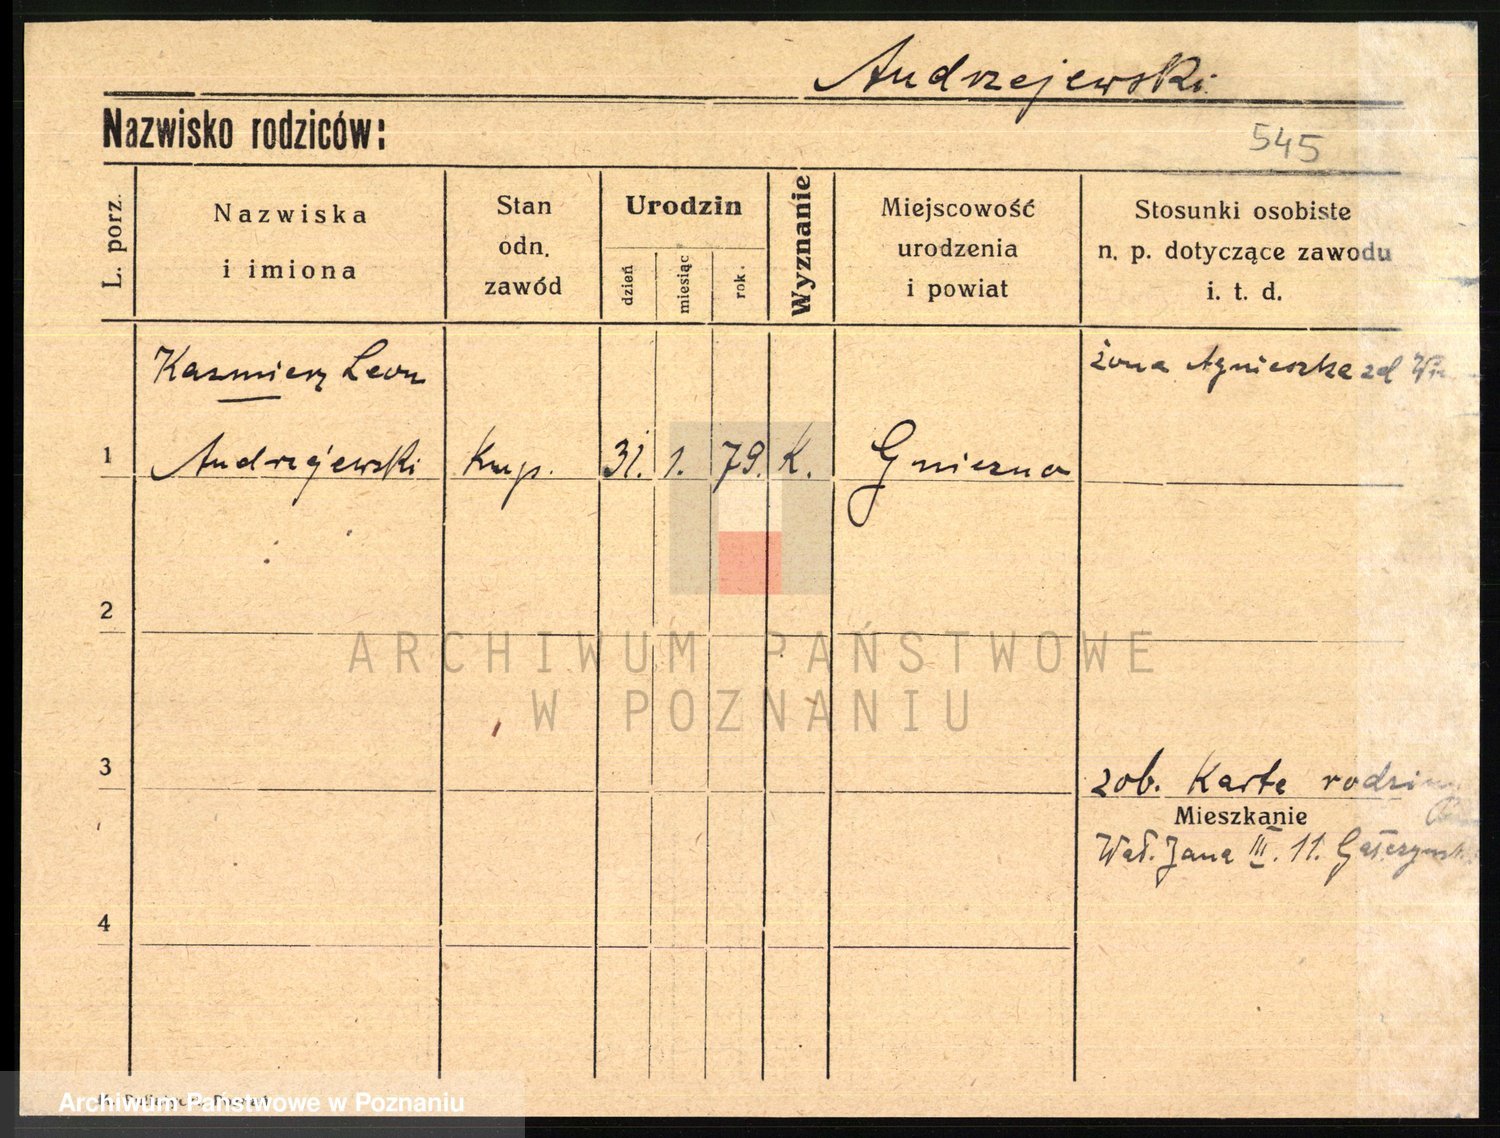 Andrzejewski
Nazwisko rodziców:
545
L. porz.
Nazwiska
i imiona
Stan
odn.
zawód
Urodzin
dzień
miesiąc
rok.
Wyznanie
Miejscowość
urodzenia
i powiat
Stosunki osobiste
n. p. dotyczące zawodu
i. t. d.
Kazmierz Leon
żona Agnieszka zd
1 Andrzejewski Kup. 31. 1. 79. K. Gniezno
2
ARCHIWUM PAŃSTWOWE
W POZNANIU
3
zob. Karte
Mieszkanie
Wał. Jana III. 11.
4
Archiwum Państwowe w Poznaniu